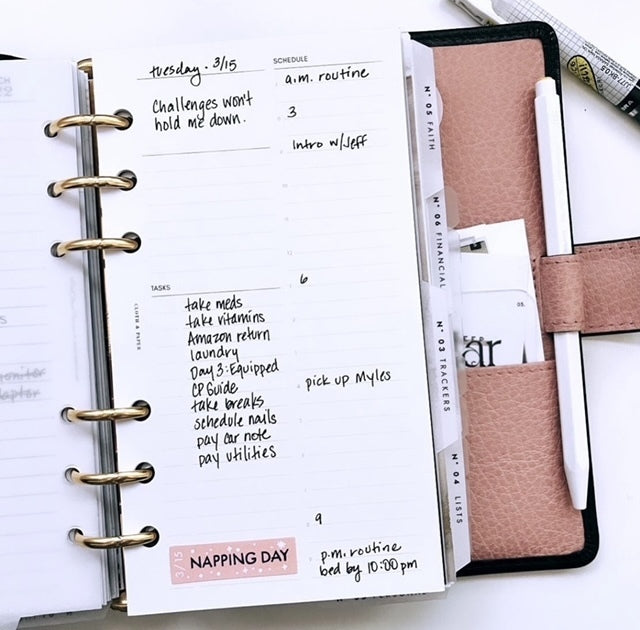 tuesday . 3/15
Challenges won't
hold me down.
SCHEDULE
a.m. routine
3
Intro w/Jeff
6
pick up Myles
9
p.m. routine
bed by 10:00pm
TASKS
take meds
take vitamins
Amazon return
laundry
Day 3: Equipped
CP Guide
take breaks
schedule nails
pay car note
pay utilities
3/15 NAPPING DAY
CLOTH & PAPER
N° 05 FAITH
N° 06 FINANCIAL
N° 03 TRACKERS
N° 04 LISTS
ar